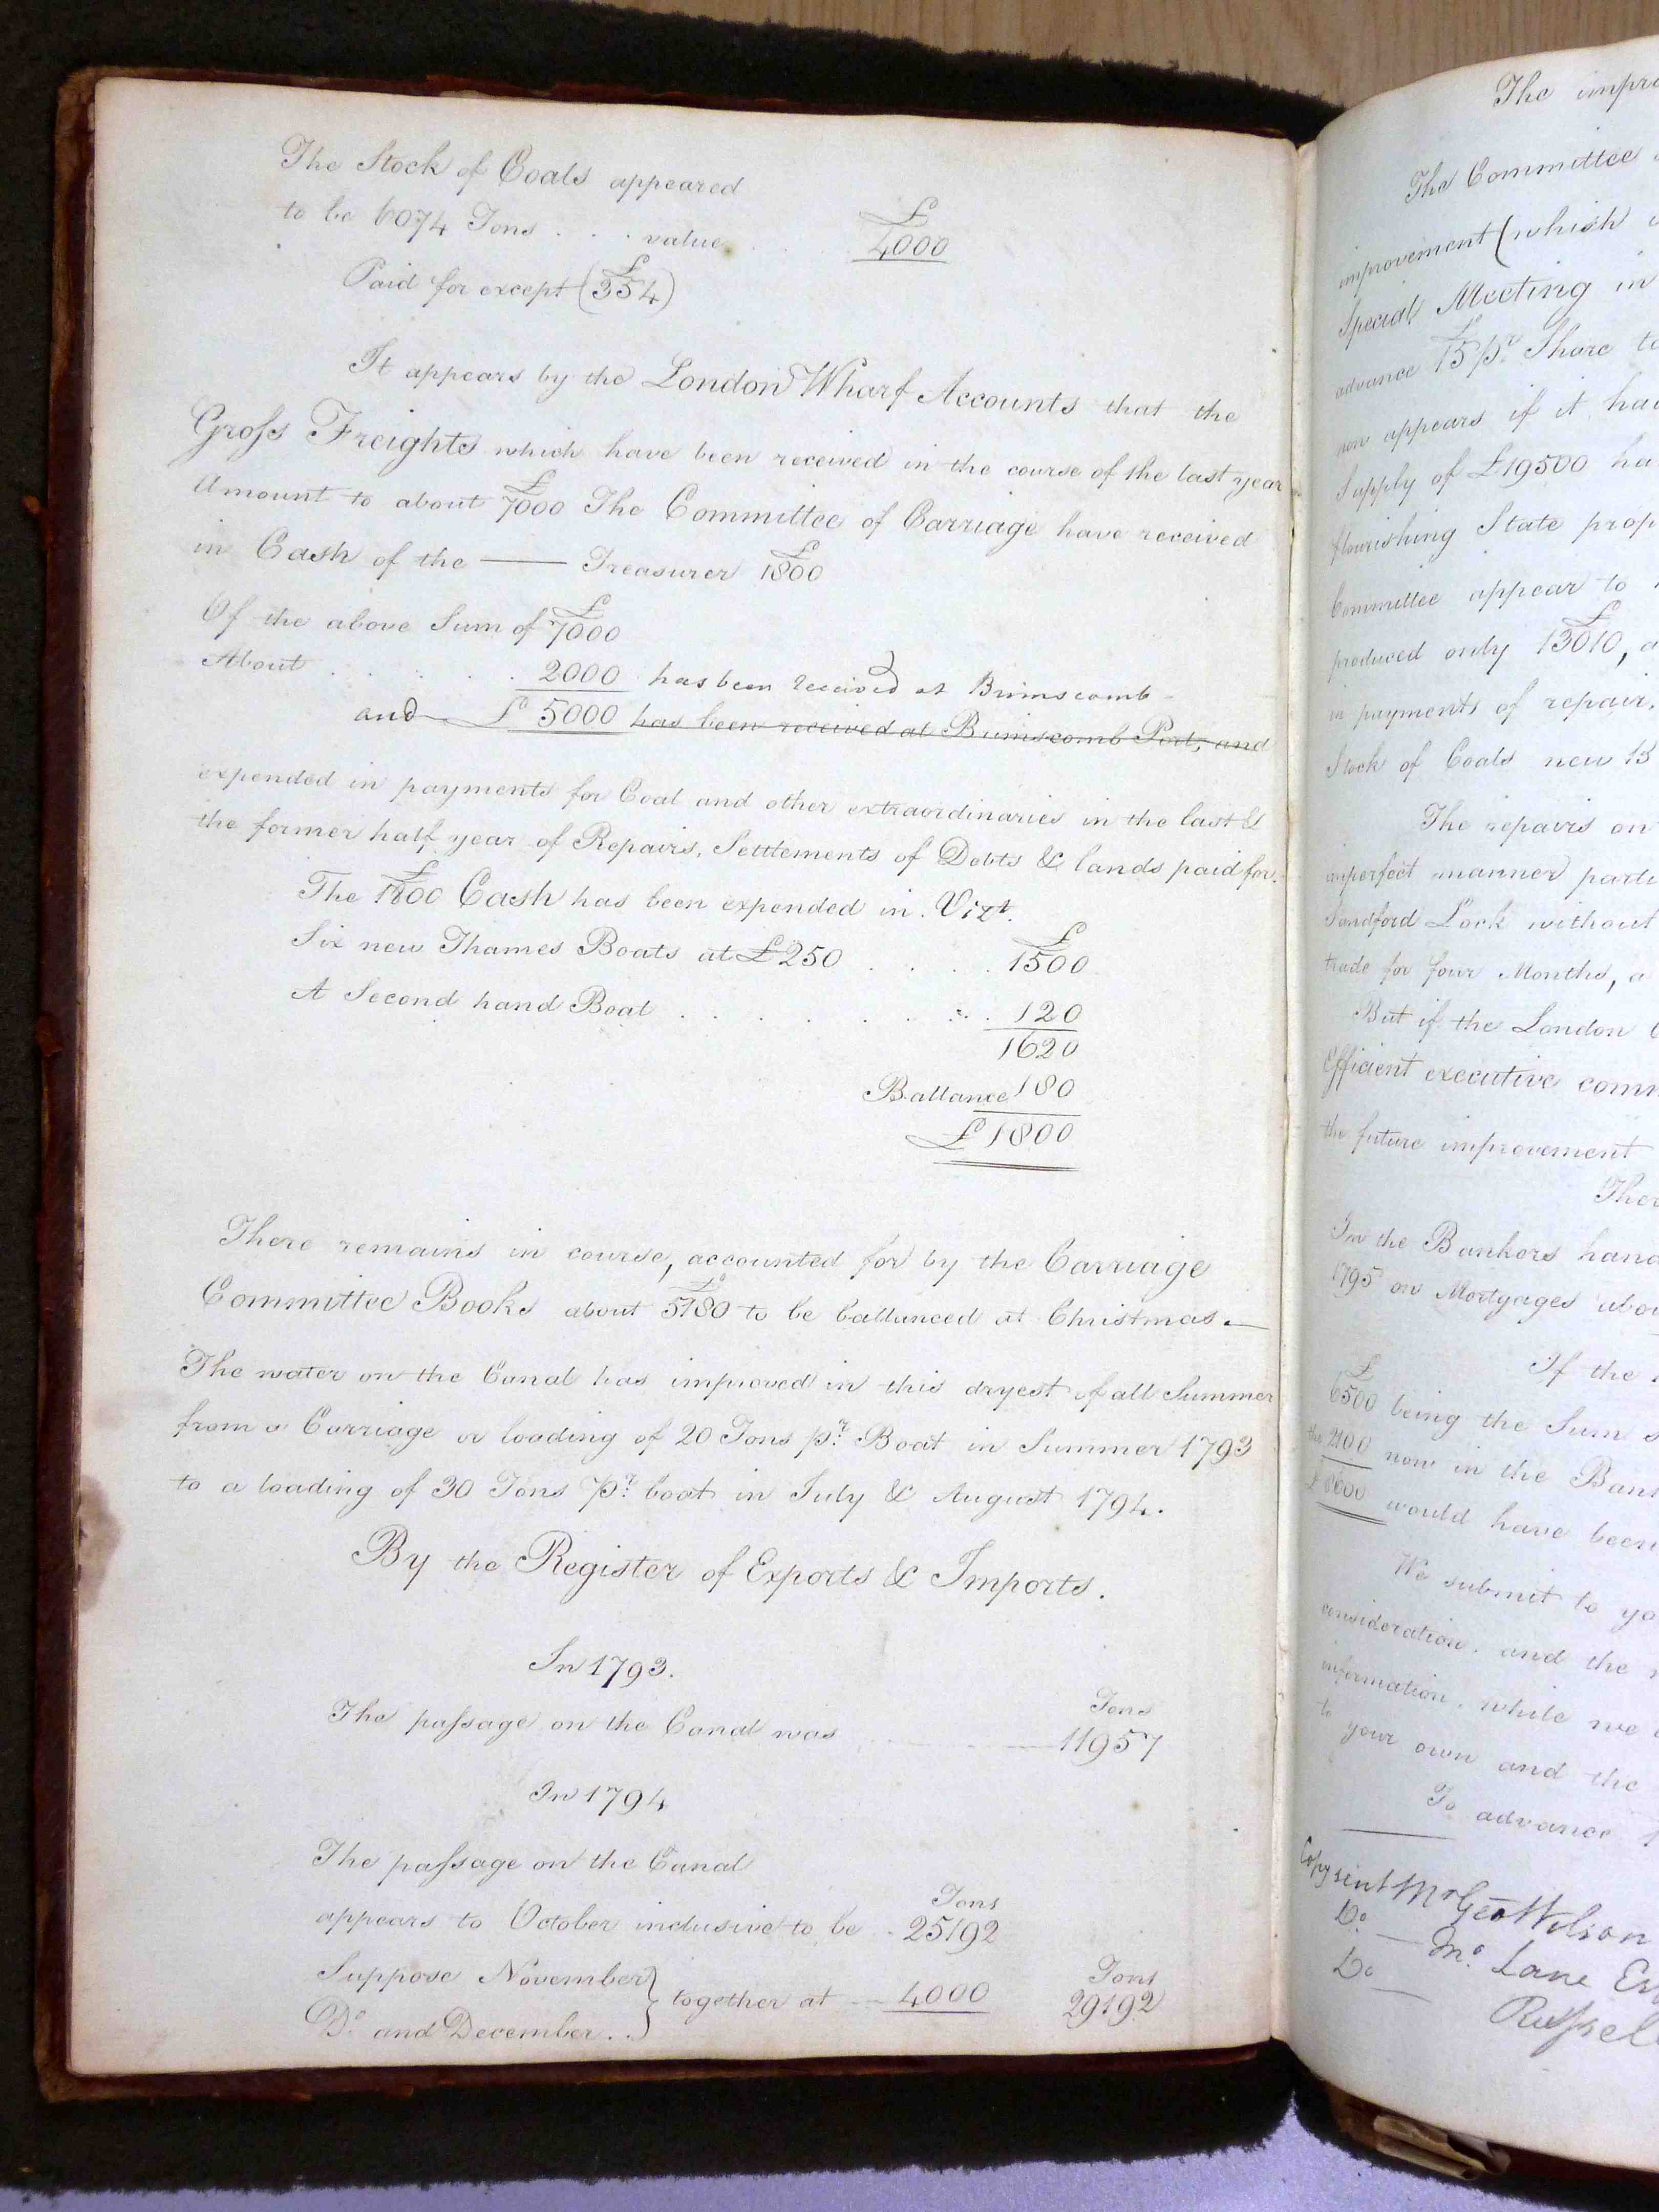 The Stock of Coals appeared
to be 6074 Tons . . . value . . £4000
Paid for except (£354)
It appears by the London Wharf Accounts that the
Groſs Freights which have been received in the course of the last year
Amount to about £7000 The Committee of Carriage have received
in Cash of the —— Treasurer £1800
Of the above Sum of £7000
About . . . . . . 2000 has been received at Brimscomb
and £5000 has been received at Brimscomb Port, and
expended in payments for Coal and other extraordinaries in the last &
the former half year of Repairs, Settlements of Debts & lands paid for.
The £1800 Cash has been expended in. Vizt.
Six new Thames Boats at £250 . . . . £1500
A Second hand Boat . . . . . . . . . 120
1620
Ballance 180
£1800
There remains in course, accounted for by the Carriage
Committee Books about £5180 to be ballanced at Christmas.—
The water on the Canal has improved in this dryest of all Summer
from a Carriage or loading of 20 Tons pr. Boat in Summer 1793
to a loading of 30 Tons pr. boat in July & August 1794.
By the Register of Exports & Imports.
In 1793.
Tons
The paſsage on the Canal was 11957
In 1794
The paſsage on the Canal
Tons
appears to October inclusive to be . 25192
Suppose November } together at — 4000 Tons 29192
Do. and December . .
The
The Committee
improvement (which
Special Meeting in
advance £15 pr. Share to
now appears if it
Supply of £19500
flourishing State
Committee appear to
produced only £13010,
in payments of repair.
Stock of Coals new 13
The repairs on
imperfect manner
Sandford Lock without
trade for four Months, a
But if the London
Efficient executive
the future improvement
In the Bankers
1795 on Mortgages
If the
£6500 being the Sum
the 2100 now in the
£8600 would have been
We submit to
consideration. and the
information. while we
to your own and the
To advance
Copy sent Mr Geo Wilson
Do. — Mr. Lane
Do —